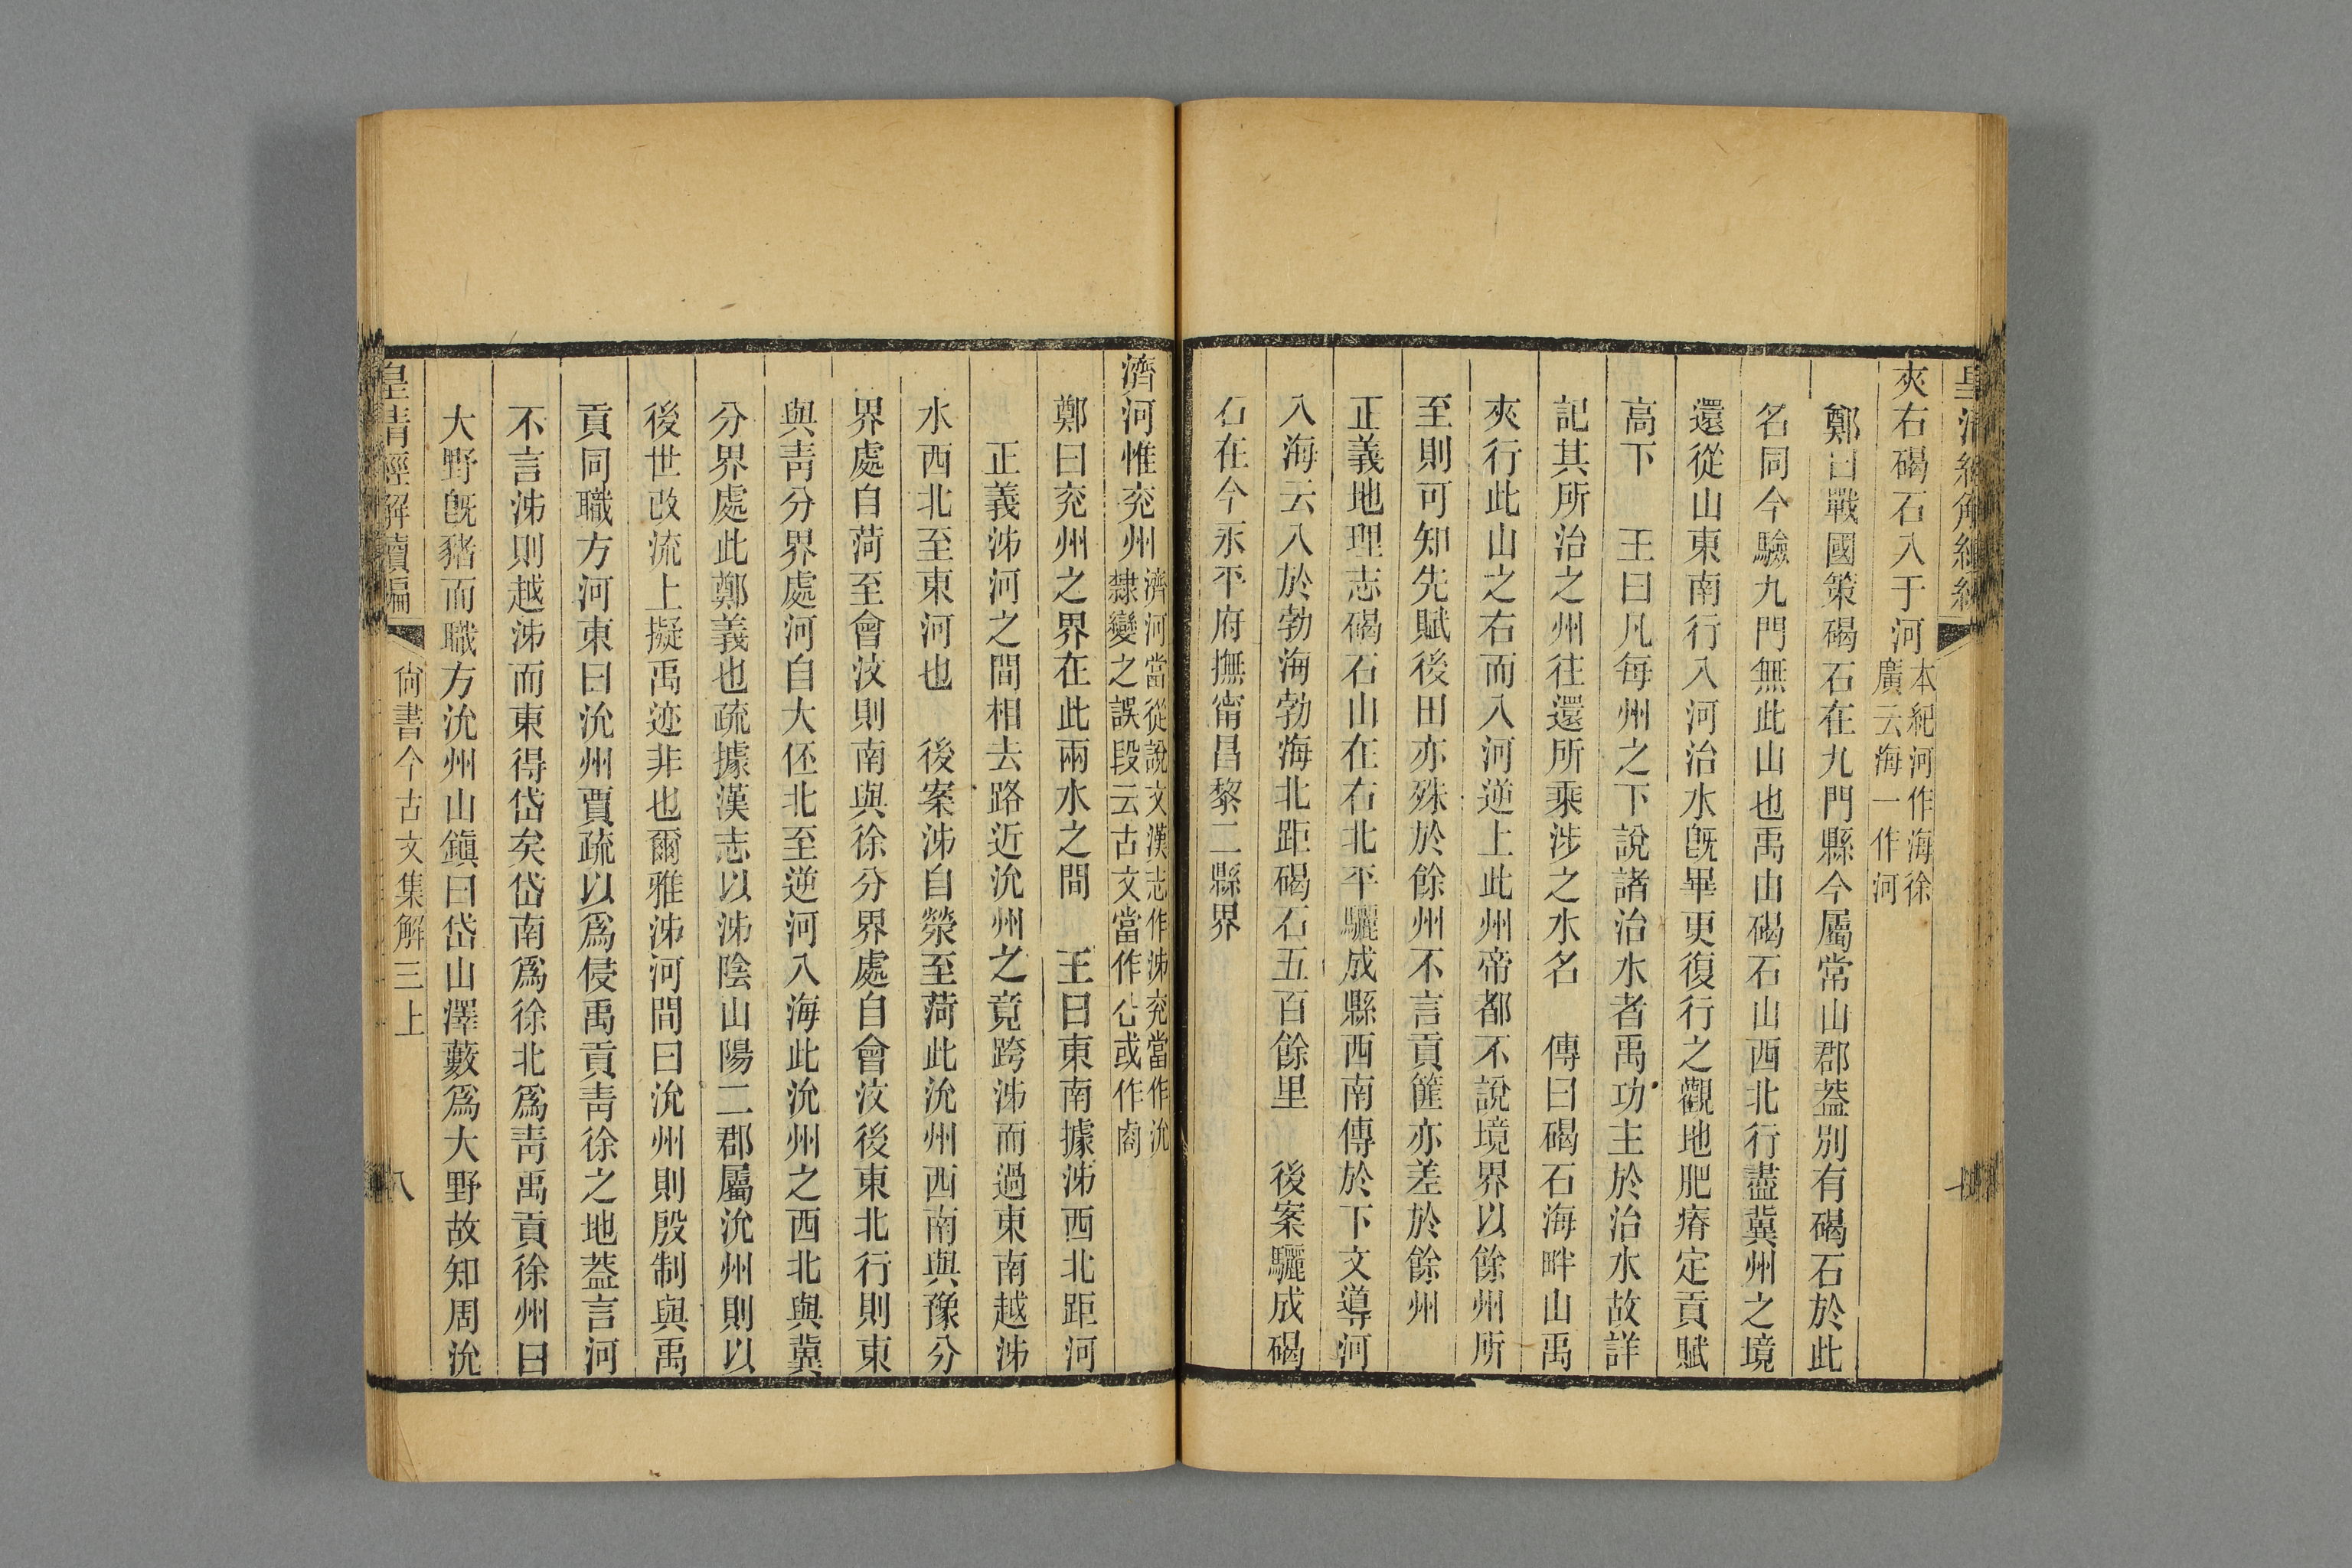 夾右碣石入于河本紀河作海徐廣云海一作河
鄭曰戰國策碣石在九門縣今屬常山郡葢別有碣石於此
名同今驗九門無此山也禹由碣石山西北行盡冀州之境
還從山東南行入河治水旣畢更復行之觀地肥瘠定貢賦
高下　王曰凡每州之下說諸治水者禹功主於治水故詳
記其所治之州往還所乘涉之水名　傳曰碣石海畔山禹
夾行此山之右而入河逆上此州帝都不說境界以餘州所
至則可知先賦後田亦殊於餘州不言貢篚亦差於餘州
正義地理志碣石山在右北平驪成縣西南傳於下文導河
入海云入於勃海勃海北距碣石五百餘里　後案驪成碣
石在今永平府撫甯昌黎二縣界
濟河惟兖州濟河當從說文漢志作泲兖當作沇隸變之誤段云古文當作㕣或作㕡
鄭曰兖州之界在此兩水之間　王曰東南據泲西北距河
正義泲河之間相去路近沇州之竟跨泲而過東南越泲
水西北至東河也　後案泲自滎至菏此沇州西南與豫分
界處自菏至會汶則南與徐分界處自會汶後東北行則東
與靑分界處河自大伾北至逆河入海此沇州之西北與冀
分界處此鄭義也疏據漢志以泲陰山陽二郡屬沇州則以
後世改流上擬禹迹非也爾雅泲河間曰沇州則殷制與禹
貢同職方河東曰沇州賈疏以爲侵禹貢靑徐之地葢言河
不言泲則越泲而東得岱矣岱南爲徐北爲靑禹貢徐州曰
大野旣豬而職方沇州山鎭曰岱山澤藪爲大野故知周沇
皇清經解續編　尙書今古文集解三上　八